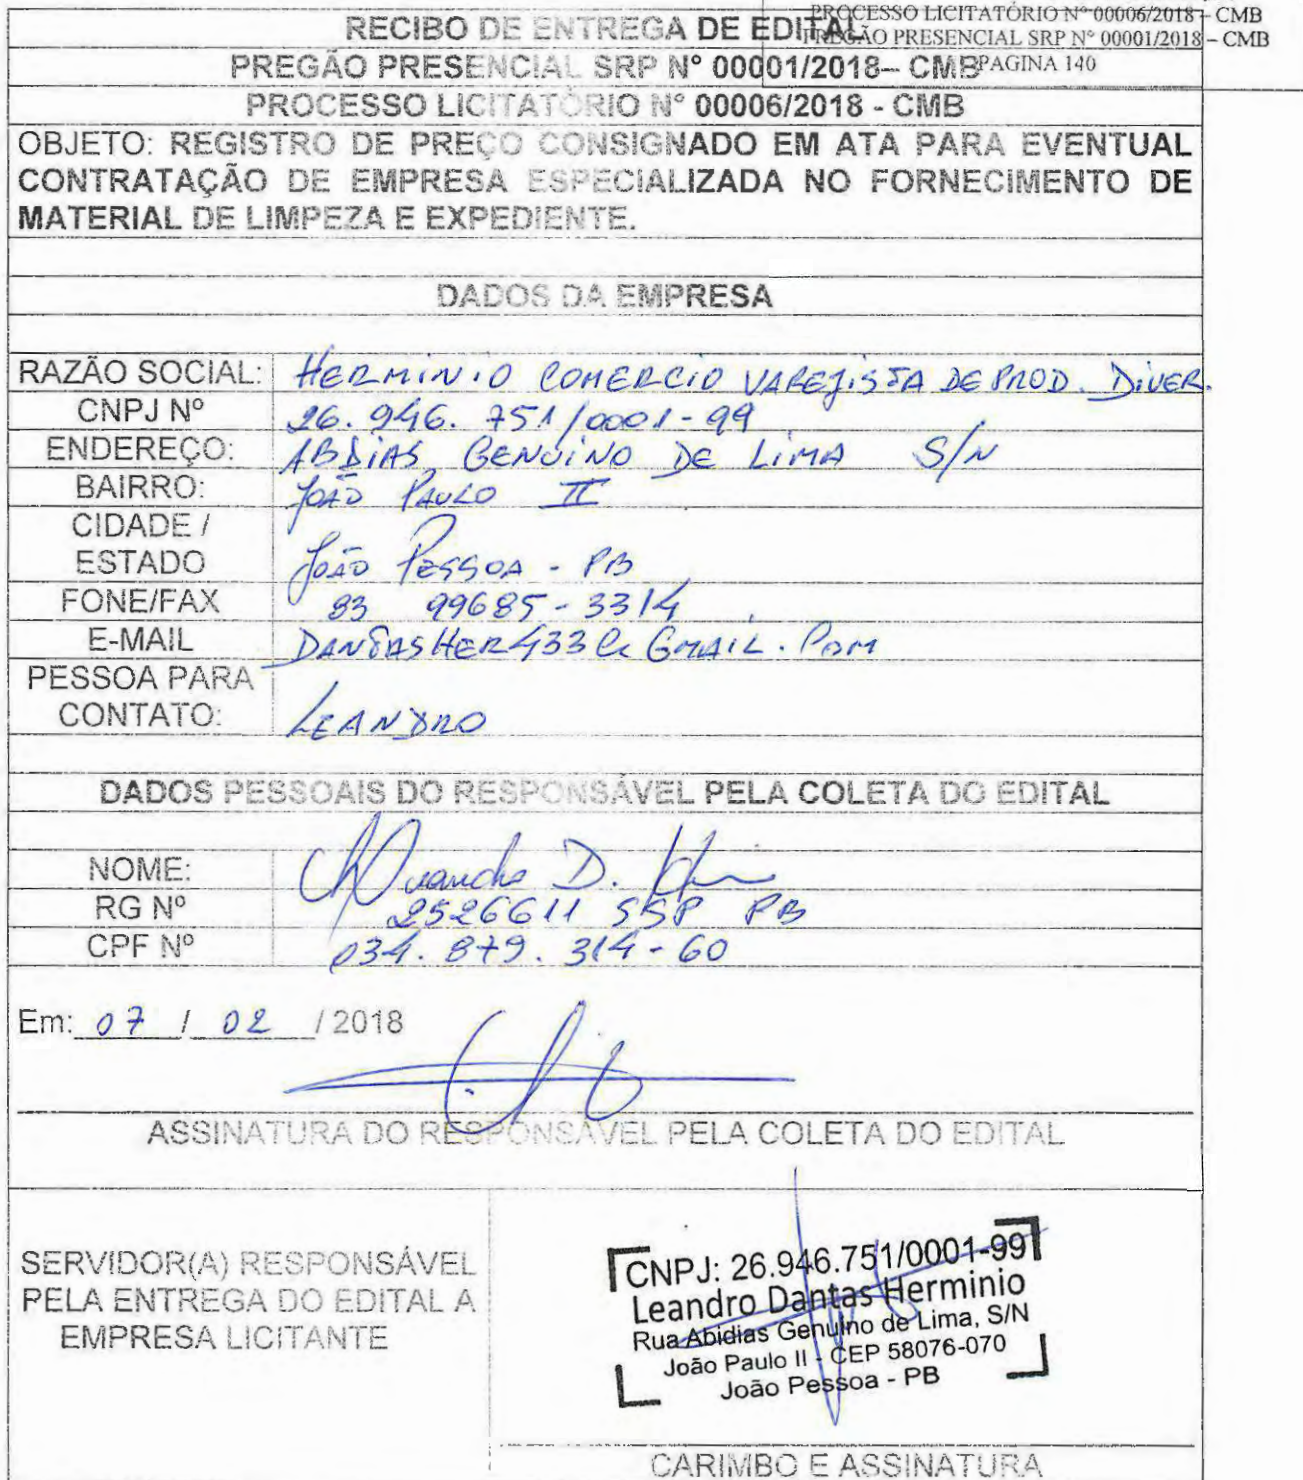 PROCESSO LICITATÓRIO Nº 00006/2018 - CMB
PREGÃO PRESENCIAL SRP Nº 00001/2018 - CMB
PAGINA 140
RECIBO DE ENTREGA DE EDITAL
PREGÃO PRESENCIAL SRP N° 00001/2018– CMB
PROCESSO LICITATÓRIO N° 00006/2018 - CMB
OBJETO: REGISTRO DE PREÇO CONSIGNADO EM ATA PARA EVENTUAL
CONTRATAÇÃO DE EMPRESA ESPECIALIZADA NO FORNECIMENTO DE
MATERIAL DE LIMPEZA E EXPEDIENTE.
DADOS DA EMPRESA
RAZÃO SOCIAL: HERMINIO COMERCIO VAREJISTA DE PROD. DIVER.
CNPJ Nº 26.946.751/0001-99
ENDEREÇO: ABDIAS GENUINO DE LIMA S/N
BAIRRO: JOÃO PAULO II
CIDADE /
ESTADO JOÃO PESSOA - PB
FONE/FAX 83 99685-3314
E-MAIL DANTASHER433@GMAIL.COM
PESSOA PARA
CONTATO: LEANDRO
DADOS PESSOAIS DO RESPONSÁVEL PELA COLETA DO EDITAL
NOME: D.
RG Nº 2526611 SSP PB
CPF Nº 034.879.314-60
Em: 07 / 02 / 2018
ASSINATURA DO RESPONSÁVEL PELA COLETA DO EDITAL
SERVIDOR(A) RESPONSÁVEL
PELA ENTREGA DO EDITAL A
EMPRESA LICITANTE
CNPJ: 26.946.751/0001-99
Leandro Dantas Herminio
Rua Abidias Genuino de Lima, S/N
João Paulo II - CEP 58076-070
João Pessoa - PB
CARIMBO E ASSINATURA